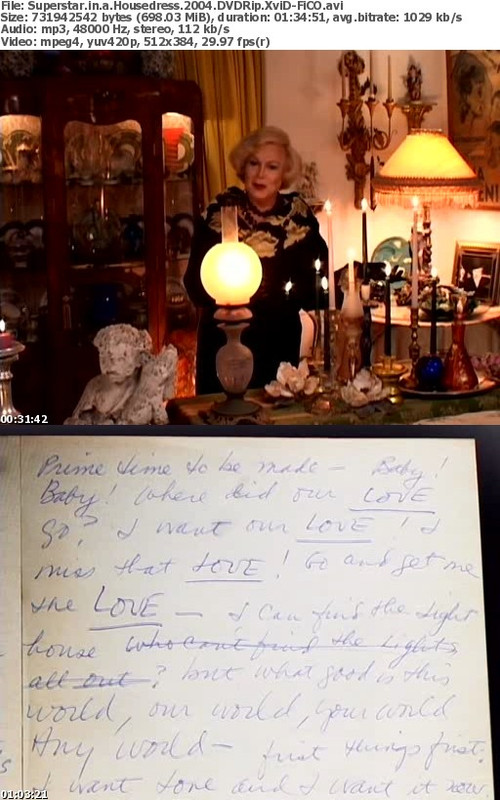 File: Superstar.in.a.Housedress.2004.DVDRip.XviD-FiCO.avi
Size: 731942542 bytes (698.03 MiB), duration: 01:34:51, avg.bitrate: 1029 kb/s
Audio: mp3, 48000 Hz, stereo, 112 kb/s
Video: mpeg4, yuv420p, 512x384, 29.97 fps(r)
00:31:42
Prime time to be made — Baby!
Baby! Where did our LOVE
go? I want our LOVE! I
miss that LOVE! Go and get me
the LOVE — I can find the light
house who can't find the lights
all out? but what good is this
world, our world, your world
Any world — first things first.
I want love and I want it now.
01:03:21